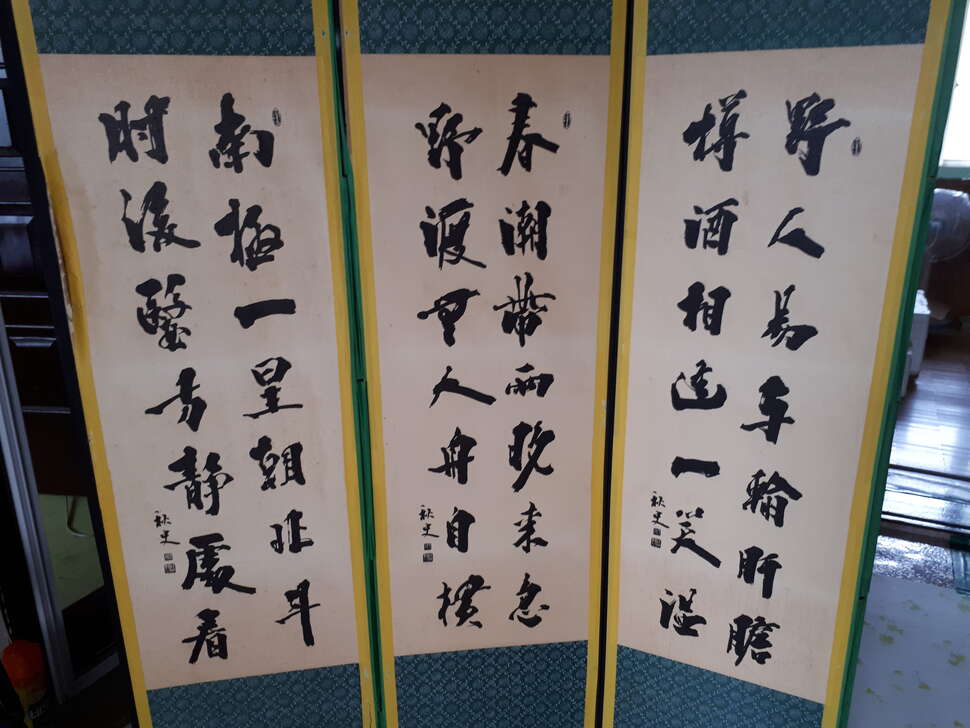 野人易与輸肝膽
樽酒相逢一笑溫
秋史
春潮帶雨晚来急
野渡無人舟自橫
秋史
南極一星朝北斗
肘後醫方靜處看
秋史